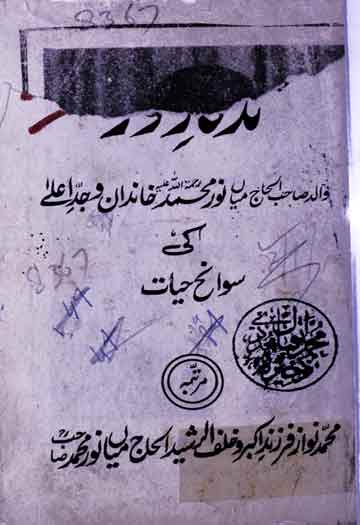 8367
والد صاحب الحاج میاں نور محمد رحمۃ اللہ علیہ خاندان و جدِّ اعلےٰ
کی
سوانح حیات
8367
مرتبہ
محمد نواز فرزندِ اکبر و خلف الرشید الحاج میاں نور محمد صاحبؒ